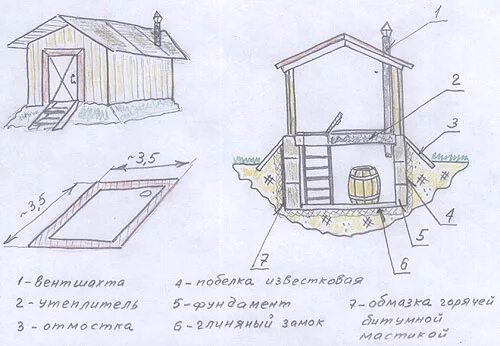 1
2
3
~3,5
~3,5
4
5
6
7
1-вентшахта
2-утеплитель
3-отмостка
4-побелка известковая
5-фундамент
6-глиняный замок
7-обмазка горячей
битумной
мастикой